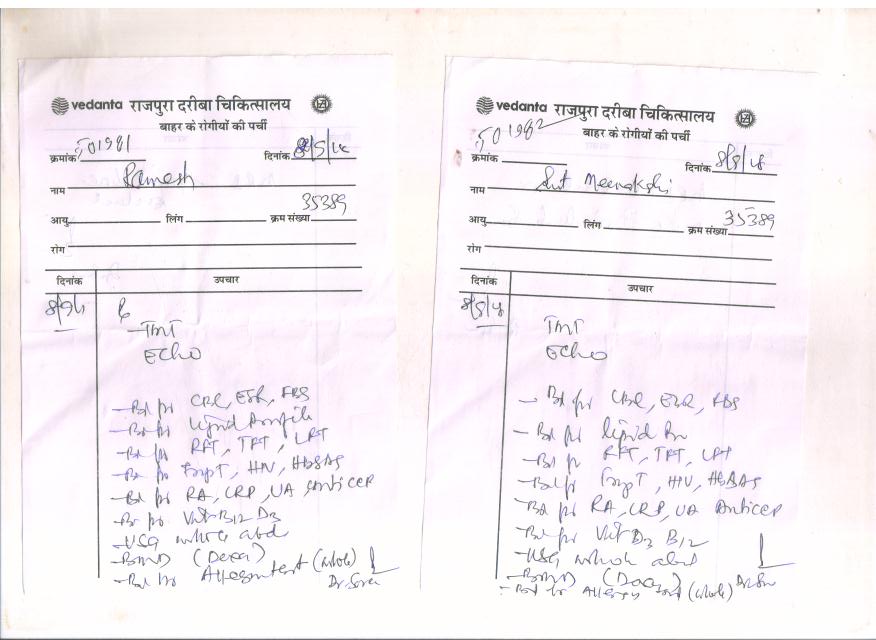 vedanta राजपुरा दरीबा चिकित्सालय
बाहर के रोगीयों की पर्ची
क्रमांक 501981 दिनांक 8/5/18
नाम Ramesh
आयु लिंग क्रम संख्या 35389
रोग
दिनांक उपचार
TMT
ECHO
- Bd for CBC, ESR, FBS
- Bd for lipid Profile
- Bd for RFT, TFT, LFT
- Bd for TropT, HIV, HBSAG
- Bd for RA, CRP, UA Anti CCP
- Bd for Vit B12 D3
- USG whole abd
- BMD (Dexa)
- Bd for Allergy test (whole)
vedanta राजपुरा दरीबा चिकित्सालय
बाहर के रोगीयों की पर्ची
501982
क्रमांक दिनांक 8/5/18
नाम Smt Meenakshi
आयु लिंग क्रम संख्या 35389
रोग
दिनांक उपचार
8/5/18
TMT
ECHO
- Bd for CBC, ESR, FBS
- Bd for lipid Pr
- Bd for RFT, TFT, LFT
- Bd for TropT, HIV, HBSAG
- Bd for RA, CRP, UA Anti CCP
- Bd for Vit D3 B12
- USG whole abd
- BMD (Dexa)
- Bd for Allergy test (whole)